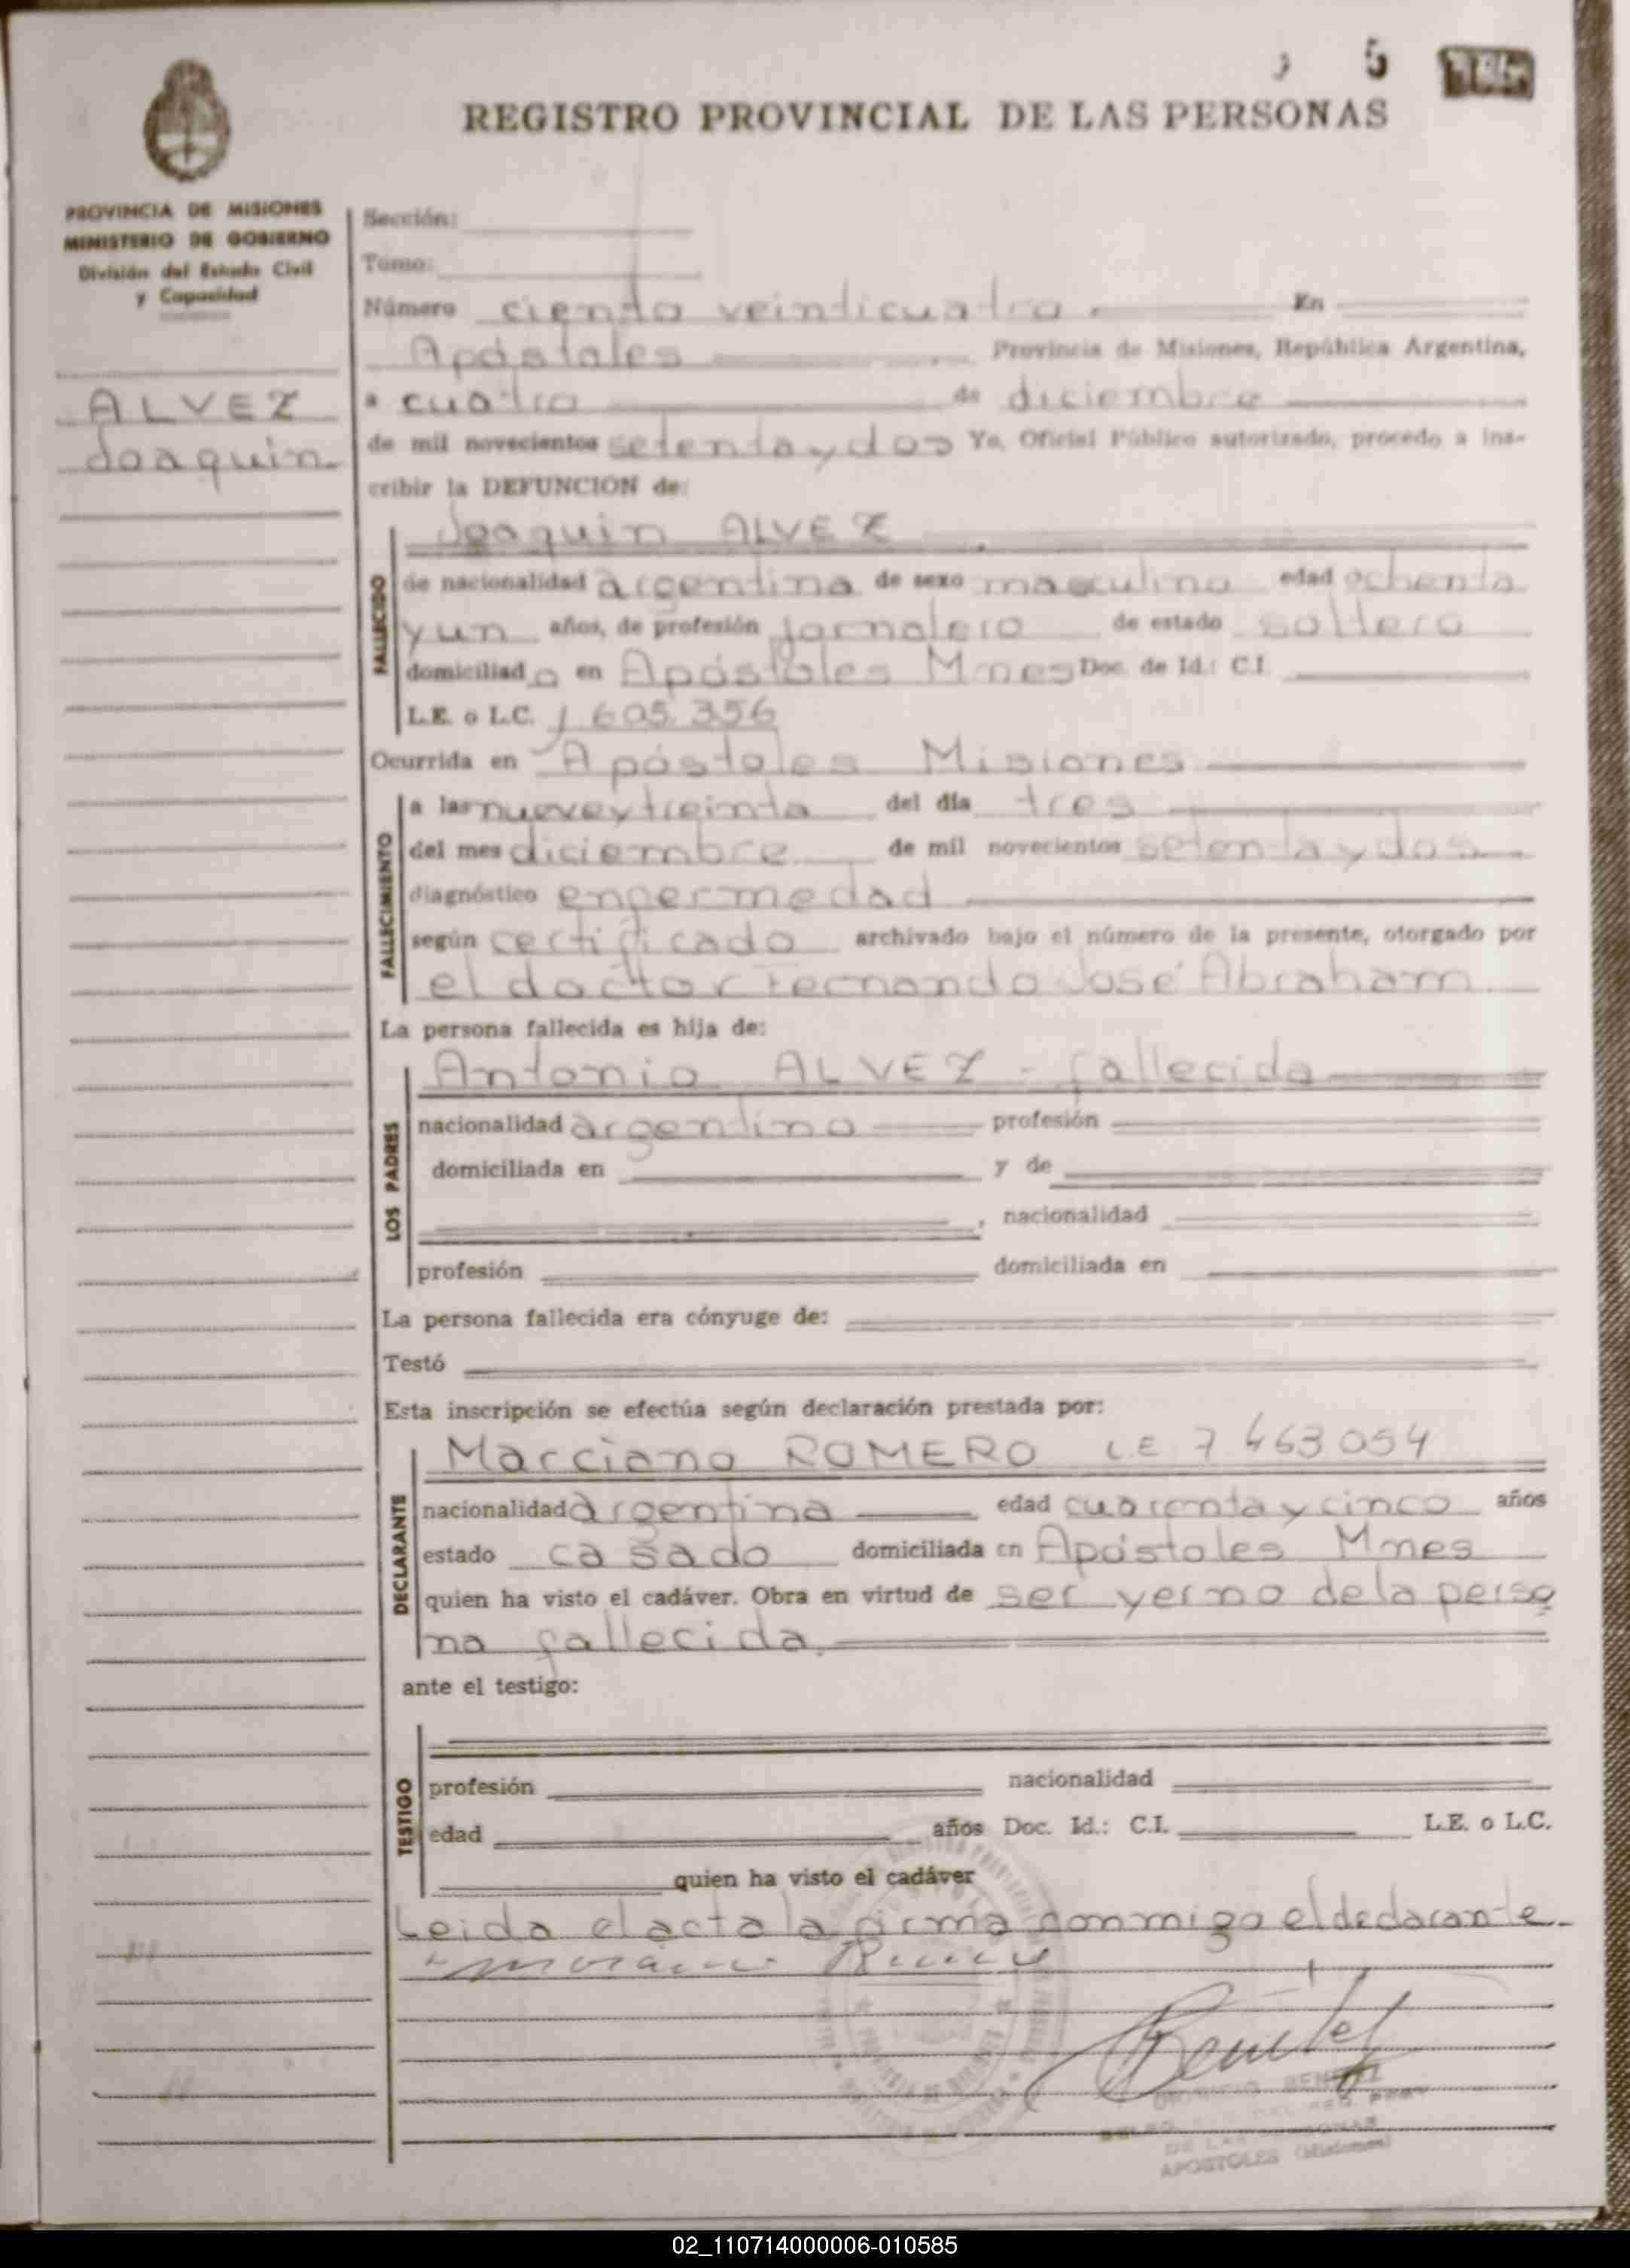 5
REGISTRO PROVINCIAL DE LAS PERSONAS
PROVINCIA DE MISIONES
MINISTERIO DE GOBIERNO
División del Estado Civil
y Capacidad
ALVEZ
Joaquin
Sección:
Tomo:
Número ciento veinticuatro. En
Apóstoles Provincia de Misiones, República Argentina,
a cuatro de diciembre
de mil novecientos setenta y dos Yo, Oficial Público autorizado, procedo a ins-
cribir la DEFUNCION de:
Joaquin ALVEZ
FALLECIDO
de nacionalidad argentina de sexo masculino edad ochenta
y un años, de profesión jornalero de estado soltero
domiciliado en Apóstoles Mnes Doc. de Id.: C.I.
L.E. o L.C. 1 605.356
Ocurrida en Apóstoles Misiones
FALLECIMIENTO
a las nueve y treinta del día tres
del mes diciembre de mil novecientos setenta y dos
diagnóstico enfermedad
según certificado archivado bajo el número de la presente, otorgado por
el doctor Fernando José Abraham
La persona fallecida es hija de:
LOS PADRES
Antonio ALVEZ - fallecido
nacionalidad argentino profesión
domiciliada en y de
, nacionalidad
profesión domiciliada en
La persona fallecida era cónyuge de:
Testó
Esta inscripción se efectúa según declaración prestada por:
DECLARANTE
Marciano ROMERO LE 7 463 054
nacionalidad argentina edad cuarenta y cinco años
estado casado domiciliada en Apóstoles Mnes
quien ha visto el cadáver. Obra en virtud de ser yerno de la perso
na fallecida.
ante el testigo:
TESTIGO
profesión nacionalidad
edad años Doc. Id.: C.I. L.E. o L.C.
quien ha visto el cadáver
Leida el acta la firma conmigo el declarante.
BENITEZ
DE LAS PERSONAS
APOSTOLES (Misiones)
02_110714000006-010585